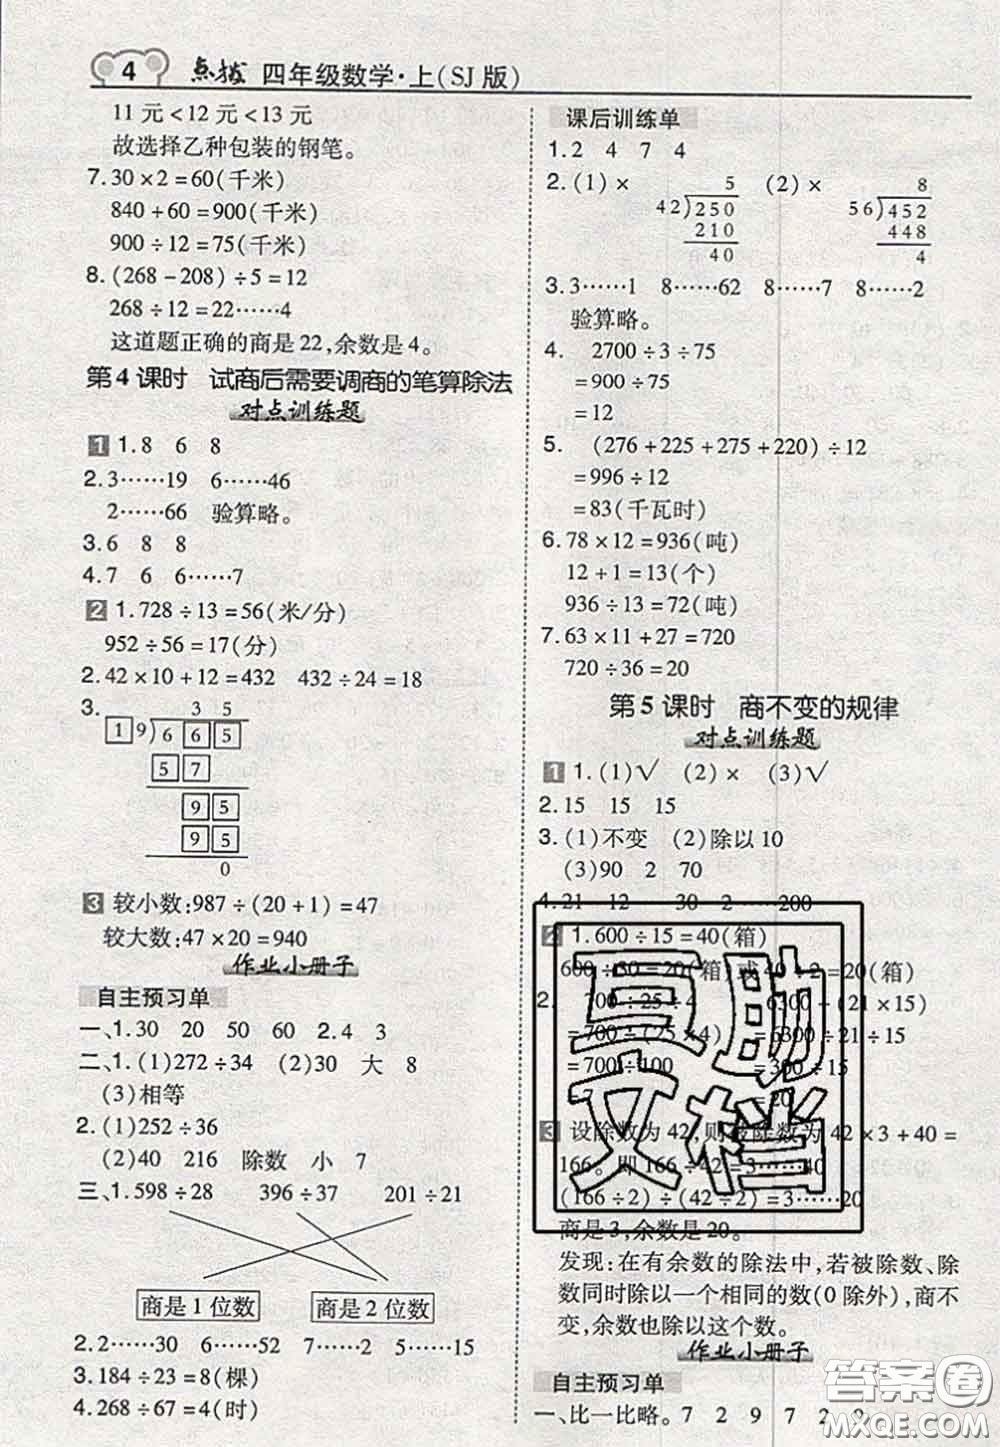 4 点拨 四年级数学·上(SJ版)
11元<12元<13元
故选择乙种包装的钢笔。
7.30×2=60(千米)
840+60=900(千米)
900÷12=75(千米)
8.(268-208)÷5=12
268÷12=22……4
这道题正确的商是22,余数是4。
第4课时 试商后需要调商的笔算除法
对点训练题
1 1.8 6 8
2.3……19 6……46
2……66 验算略。
3.6 8 8
4.7 6 6……7
2 1.728÷13=56(米/分)
952÷56=17(分)
2.42×10+12=432 432÷24=18
3. 3 5
1 9 ) 6 6 5
5 7
9 5
9 5
0
3 较小数:987÷(20+1)=47
较大数:47×20=940
作业小册子
自主预习单
一、1.30 20 50 60 2.4 3
二、1.(1)272÷34 (2)30 大 8
(3)相等
2.(1)252÷36
(2)40 216 除数 小 7
三、1.598÷28 396÷37 201÷21
商是1位数 商是2位数
2.2……30 6……52 7……2 5……15
3.184÷23=8(棵)
4.268÷67=4(时)
课后训练单
1.2 4 7 4
2.(1)× 5 (2)× 8
42)250 56)452
210 448
40 4
3.3……1 8……62 8……7 8……2
验算略。
4. 2700÷3÷75
=900÷75
=12
5. (276+225+275+220)÷12
=996÷12
=83(千瓦时)
6.78×12=936(吨)
12+1=13(个)
936÷13=72(吨)
7.63×11+27=720
720÷36=20
第5课时 商不变的规律
对点训练题
1 1.(1)√ (2)× (3)√
2.15 15 15
3.(1)不变 (2)除以10
(3)90 2 70
4.21 12 30 2……200
2 1.600÷15=40(箱)
600÷30=20(箱)或40÷2=20(箱)
2. 700÷25÷4 6300÷(21×15)
=700÷(25×4) =6300÷21÷15
=700÷100 =300÷15
=7 =20
3 设除数为42,则被除数为42×3+40=
166。即166÷42=3……40
(166÷2)÷(42÷2)=3……20
商是3,余数是20。
发现:在有余数的除法中,若被除数、除
数同时除以一个相同的数(0除外),商不
变,余数也除以这个数。
作业小册子
自主预习单
一、比一比略。7 2 9 7 2
互助
文档
答案圈
MXQE.COM